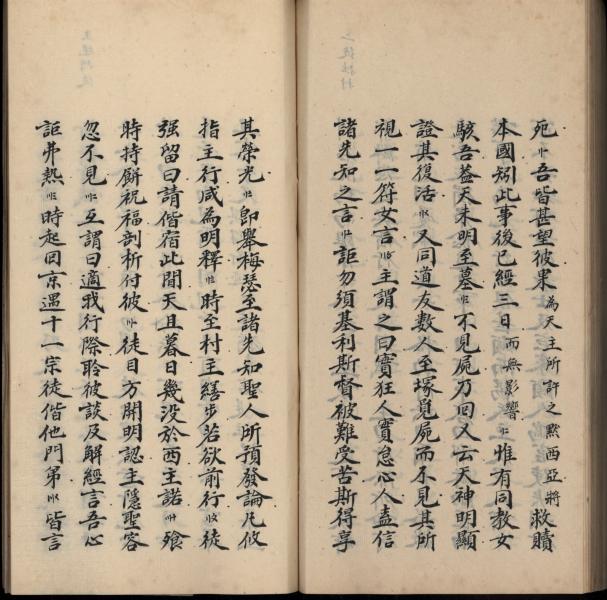 死吾皆甚望彼果為天主所許之黙西亞將救贖
本國矧此事後已經三日而無影響惟有同教女
駭吾葢天未明至墓不見屍乃回又云天神明顯
證其復活又同道友數人至塚覓屍而不見其所
視一一符女言主謂之曰實狂人實怠心人盍信
諸先知之言詎勿須基利斯督被難受苦斯得享
其榮光即舉梅瑟至諸先知聖人所預發論凡攸
指主行咸為明釋時至村主繕步若欲前行徒
强留曰請偕宿此間天且暮日幾没於西主諾飱
時持餅祝福剖析付彼徒目方開明認主隱聖容
忽不見互謂曰適我行際聆彼談及解經言吾心
詎弗熱時起回京遇十一宗徒偕他門弟皆言